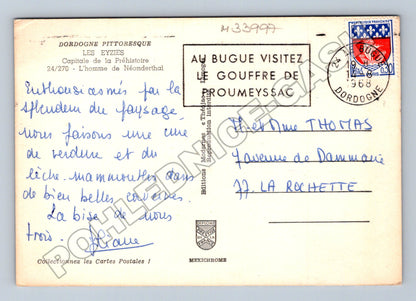 433997
DORDOGNE PITTORESQUE
LES EYZIES
Capitale de la Préhistoire
24/270 - L'homme de Néanderthal
AU BUGUE VISITEZ
LE GOUFFRE DE
PROUMEYSSAC
24 LE BUGUE
1968
DORDOGNE
REPUBLIQUE FRANÇAISE
0,30
PARIS
Enthousiasmés par la
splendeur du paysage,
nous faisons une cure
de verdure et du
lèche-mammouths dans
de bien belles cavernes.
La bise de nous
trois.
Liane
M et Mme THOMAS
7 avenue de Dammarie
77. LA ROCHETTE
Editions Modernes
Reproduction interdite
MEXICHROME
Collectionnez les Cartes Postales !
POHLEDNICE-GASH